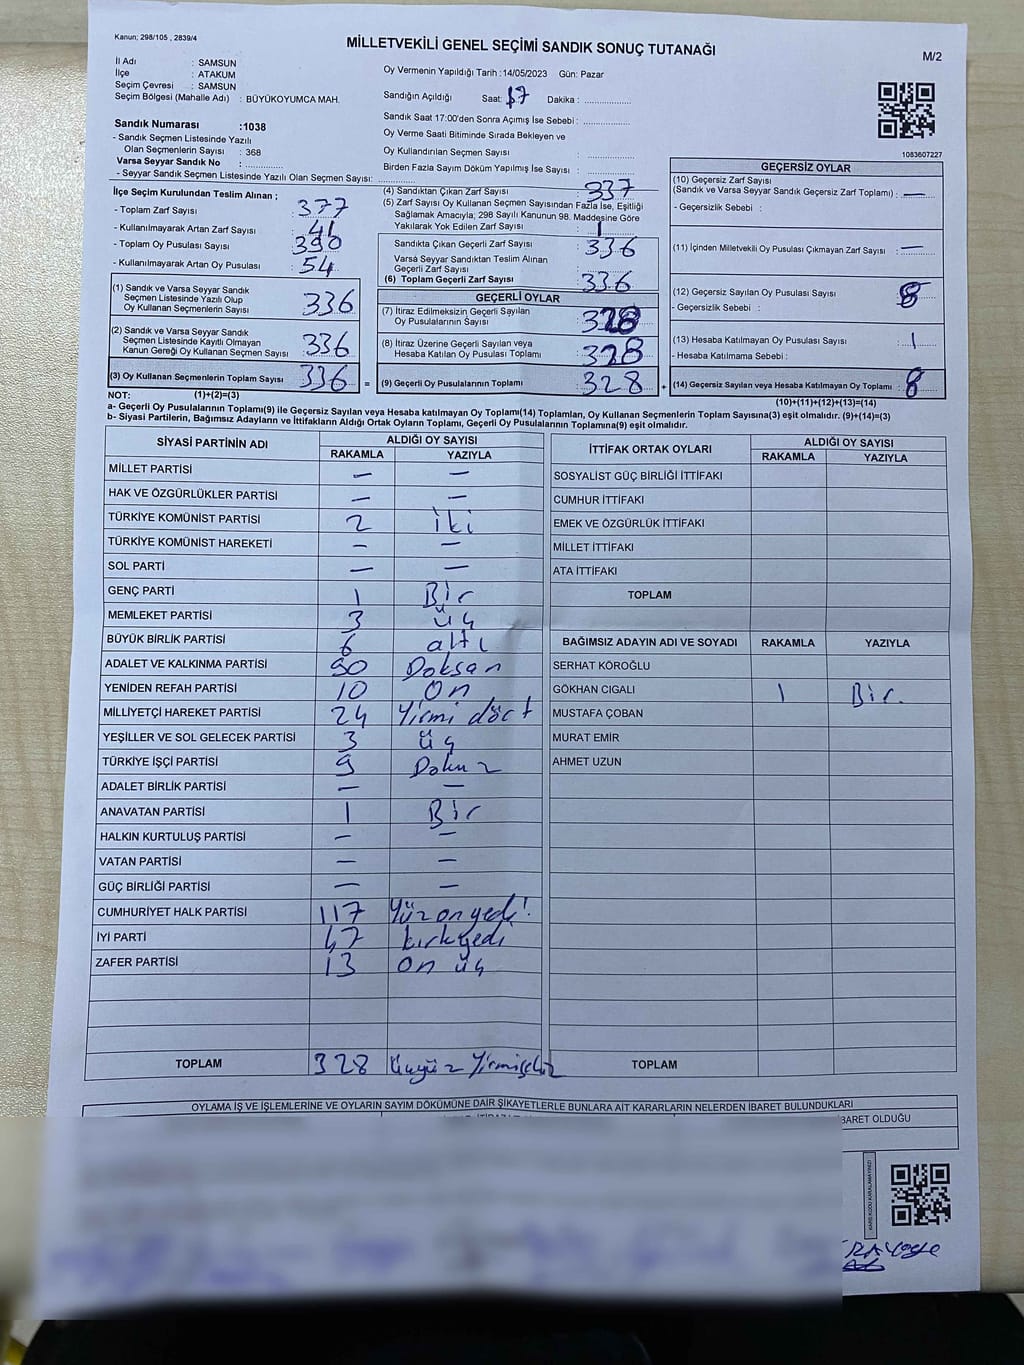 Kanun; 298/105 , 2839/4
MİLLETVEKİLİ GENEL SEÇİMİ SANDIK SONUÇ TUTANAĞI
M/2
İl Adı : SAMSUN
İlçe : ATAKUM
Seçim Çevresi : SAMSUN
Seçim Bölgesi (Mahalle Adı) : BÜYÜKOYUMCA MAH.
Sandık Numarası :1038
- Sandık Seçmen Listesinde Yazılı
Olan Seçmenlerin Sayısı : 368
Varsa Seyyar Sandık No :
- Seyyar Sandık Seçmen Listesinde Yazılı Olan Seçmen Sayısı:
Oy Vermenin Yapıldığı Tarih :14/05/2023 Gün: Pazar
Sandığın Açıldığı Saat: 17 Dakika :
Sandık Saat 17:00'den Sonra Açımış İse Sebebi :
Oy Verme Saati Bitiminde Sırada Bekleyen ve
Oy Kullandırılan Seçmen Sayısı :
Birden Fazla Sayım Döküm Yapılmış İse Sayısı :
1083607227
İlçe Seçim Kurulundan Teslim Alınan ;
- Toplam Zarf Sayısı : 377
- Kullanılmayarak Artan Zarf Sayısı : 41
- Toplam Oy Pusulası Sayısı : 390
- Kullanılmayarak Artan Oy Pusulası : 54
(1) Sandık ve Varsa Seyyar Sandık
Seçmen Listesinde Yazılı Olup
Oy Kullanan Seçmenlerin Sayısı : 336
(2) Sandık ve Varsa Seyyar Sandık
Seçmen Listesinde Kayıtlı Olmayan
Kanun Gereği Oy Kullanan Seçmen Sayısı : 336
(3) Oy Kullanan Seçmenlerin Toplam Sayısı : 336 =
(4) Sandıktan Çıkan Zarf Sayısı : 337
(5) Zarf Sayısı Oy Kullanan Seçmen Sayısından Fazla İse, Eşitliği
Sağlamak Amacıyla; 298 Sayılı Kanunun 98. Maddesine Göre
Yakılarak Yok Edilen Zarf Sayısı : 1
Sandıkta Çıkan Geçerli Zarf Sayısı : 336
Varsa Seyyar Sandıktan Teslim Alınan
Geçerli Zarf Sayısı :
(6) Toplam Geçerli Zarf Sayısı : 336
GEÇERLİ OYLAR
(7) İtiraz Edilmeksizin Geçerli Sayılan
Oy Pusulalarının Sayısı : 328
(8) İtiraz Üzerine Geçerli Sayılan veya
Hesaba Katılan Oy Pusulası Toplamı : 328
(9) Geçerli Oy Pusulalarının Toplamı : 328 +
GEÇERSİZ OYLAR
(10) Geçersiz Zarf Sayısı
(Sandık ve Varsa Seyyar Sandık Geçersiz Zarf Toplamı) : —
- Geçersizlik Sebebi :
(11) İçinden Milletvekili Oy Pusulası Çıkmayan Zarf Sayısı : —
(12) Geçersiz Sayılan Oy Pusulası Sayısı : 8
- Geçersizlik Sebebi :
(13) Hesaba Katılmayan Oy Pusulası Sayısı : 1
- Hesaba Katılmama Sebebi :
(14) Geçersiz Sayılan veya Hesaba Katılmayan Oy Toplamı : 8
NOT: (1)+(2)=(3)
(10)+(11)+(12)+(13)=(14)
a- Geçerli Oy Pusulalarının Toplamı(9) ile Geçersiz Sayılan veya Hesaba katılmayan Oy Toplamı(14) Toplamları, Oy Kullanan Seçmenlerin Toplam Sayısına(3) eşit olmalıdır. (9)+(14)=(3)
b- Siyasi Partilerin, Bağımsız Adayların ve İttifakların Aldığı Ortak Oyların Toplamı, Geçerli Oy Pusulalarının Toplamına(9) eşit olmalıdır.
SİYASİ PARTİNİN ADI ALDIĞI OY SAYISI
RAKAMLA YAZIYLA
MİLLET PARTİSİ — —
HAK VE ÖZGÜRLÜKLER PARTİSİ — —
TÜRKİYE KOMÜNİST PARTİSİ 2 iki
TÜRKİYE KOMÜNİST HAREKETİ — —
SOL PARTİ — —
GENÇ PARTİ 1 Bir
MEMLEKET PARTİSİ 3 üç
BÜYÜK BİRLİK PARTİSİ 6 altı
ADALET VE KALKINMA PARTİSİ 90 Doksan
YENİDEN REFAH PARTİSİ 10 On
MİLLİYETÇİ HAREKET PARTİSİ 24 Yirmi dört
YEŞİLLER VE SOL GELECEK PARTİSİ 3 üç
TÜRKİYE İŞÇİ PARTİSİ 9 Dokuz
ADALET BİRLİK PARTİSİ — —
ANAVATAN PARTİSİ 1 Bir
HALKIN KURTULUŞ PARTİSİ — —
VATAN PARTİSİ — —
GÜÇ BİRLİĞİ PARTİSİ — —
CUMHURİYET HALK PARTİSİ 117 Yüz on yedi
İYİ PARTİ 47 kırk yedi
ZAFER PARTİSİ 13 on üç
TOPLAM 328 Üçyüz Yirmisekiz
İTTİFAK ORTAK OYLARI ALDIĞI OY SAYISI
RAKAMLA YAZIYLA
SOSYALİST GÜÇ BİRLİĞİ İTTİFAKI
CUMHUR İTTİFAKI
EMEK VE ÖZGÜRLÜK İTTİFAKI
MİLLET İTTİFAKI
ATA İTTİFAKI
TOPLAM
BAĞIMSIZ ADAYIN ADI VE SOYADI RAKAMLA YAZIYLA
SERHAT KÖROĞLU
GÖKHAN CIGALI 1 Bir
MUSTAFA ÇOBAN
MURAT EMİR
AHMET UZUN
TOPLAM
OYLAMA İŞ VE İŞLEMLERİNE VE OYLARIN SAYIM DÖKÜMÜNE DAİR ŞİKAYETLERLE BUNLARA AİT KARARLARIN NELERDEN İBARET BULUNDUKLARI
İBARET OLDUĞU